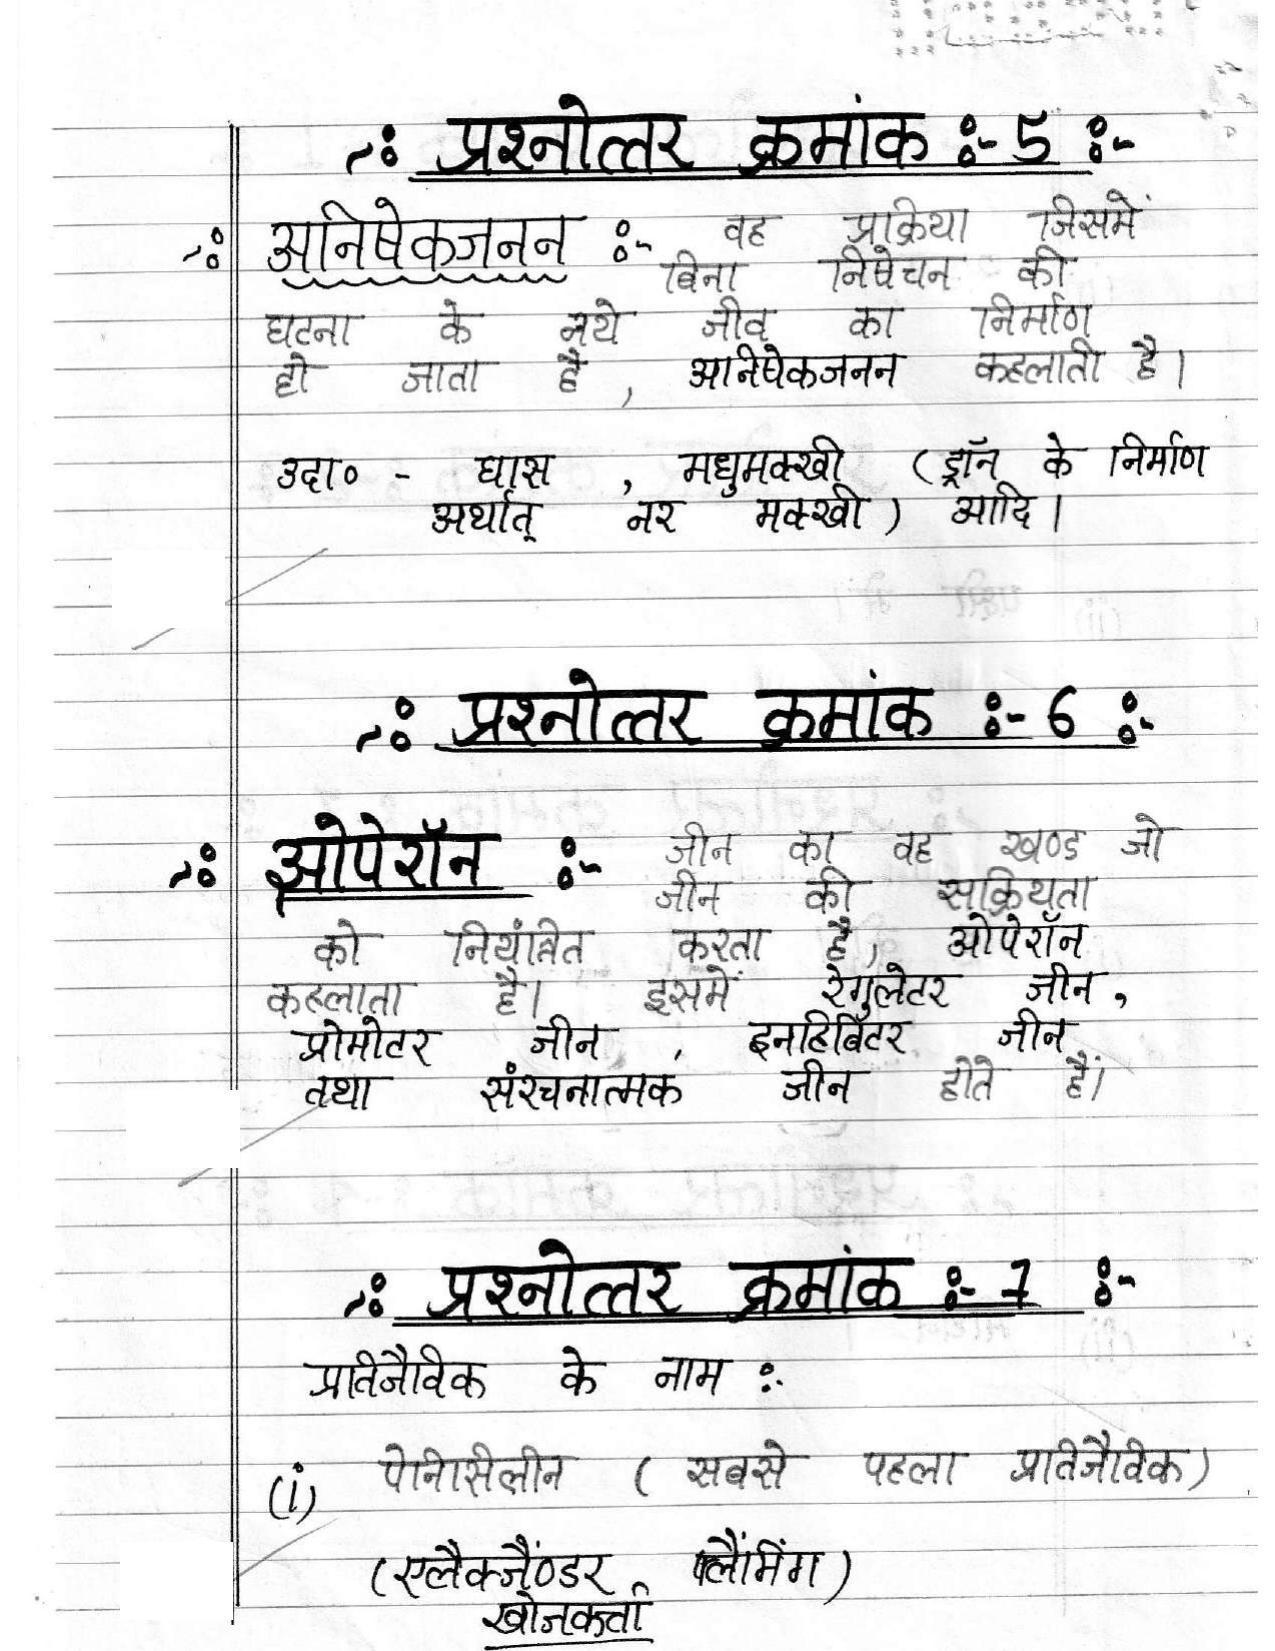 ~: प्रश्नोत्तर क्रमांक :- 5 :-
~: अनिषेकजनन :- वह प्रक्रिया जिसमें
बिना निषेचन की
घटना के नये जीव का निर्माण
हो जाता है, अनिषेकजनन कहलाती है।
उदा० - घास , मधुमक्खी (ड्रॉन के निर्माण
अर्थात् नर मक्खी) आदि।
~: प्रश्नोत्तर क्रमांक :- 6 :-
~: ओपेरॉन :- जीन का वह खण्ड जो
जीन की सक्रियता
को नियंत्रित करता है, ओपेरॉन
कहलाता है। इसमें रेगुलेटर जीन,
प्रोमोटर जीन , इनहिबिटर जीन
तथा संरचनात्मक जीन होते हैं।
~: प्रश्नोत्तर क्रमांक :- 7 :-
प्रतिजैविक के नाम :-
(i) पेनिसिलीन ( सबसे पहला प्रतिजैविक)
(एलैक्जैण्डर फ्लैमिंग)
खोजकर्ता